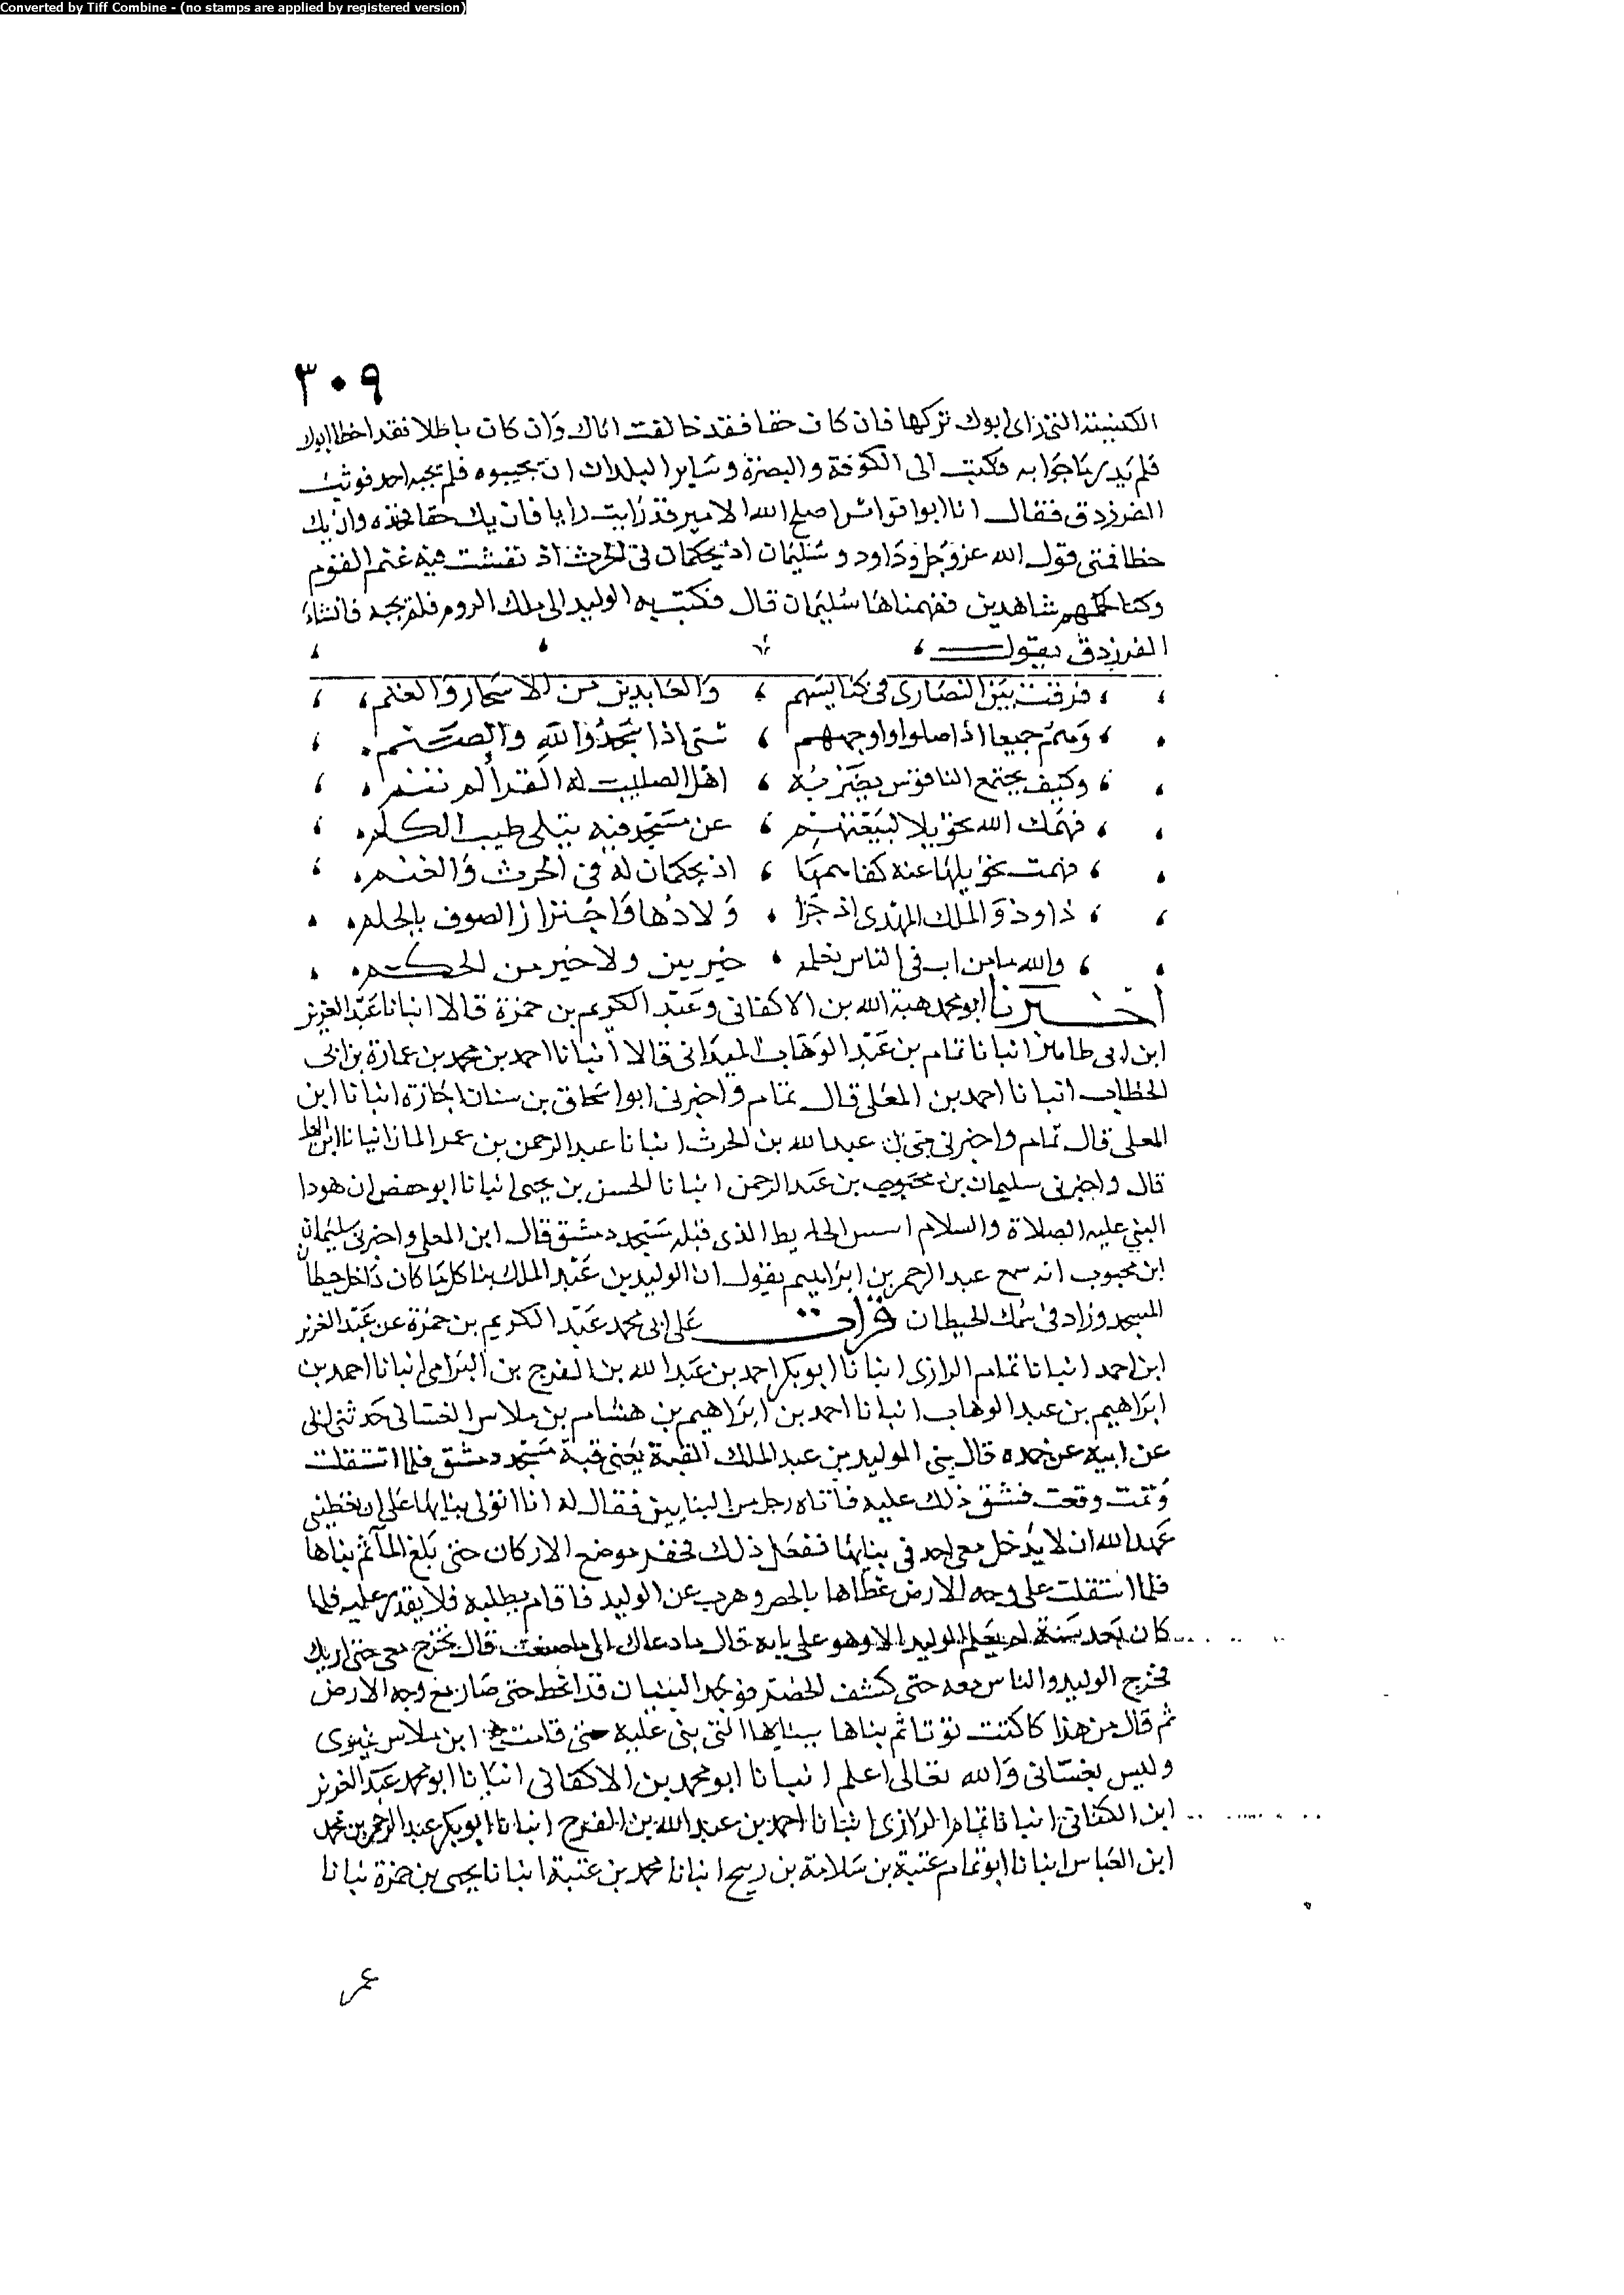 Converted by Tiff Combine - (no stamps are applied by registered version)
٣٠٩
الكنيسة التى راى ابوك تركها فان كان حقا فقد خالفت اباك وان كان باطلا فقد اخطا ابوك
فلم يدر ما جوابه فكتب الى الكوفة والبصرة وساير البلدان ان يجيبوه فلم يجبه احد فوثب
الفرزدق فقال انا ابوا فراس اصلح الله الامير قد رايت رايا فان يك حقا فخذه وان يك
خطا فمنى قول الله عز وجل وداود وسليمان اذ يحكمان فى الحرث اذ نفشت فيه غنم القوم
وكنا لحكمهم شاهدين ففهمناها سليمان قال فكتب به الوليد الى ملك الروم فلم يجبه فانشاء
الفرزدق يقول
فرقت بين النصارى فى كنايسهم ، والعابدين من الاسحار والعتم
وهم جميعا اذا صلوا واوجههم ، شتى اذا سجدوا لله والصنم
وكيف يجتمع الناقوس يضربه ، اهل الصليب له القرا لم تنم
فهمك الله تحويلا لبيعتهم ، عن مسجد فيه يتلى طيب الكلم
فهمت تحويلها عنه كما فهما ، اذ يحكمان له فى الحرث والغنم
داود والملك المهدى اذ جزا ، ولادها واجتزاز الصوف بالجلم
والله ما من اب فى الناس نعلمه ، خير بنين ولا خير من الحكم
اخبرنا ابو محمد هبة الله بن الاكفانى وعبد الكريم بن حمزة قالا انبانا عبد العزيز
ابن ابى طاهر انبانا تمام بن عبد الوهاب الميدانى قالا انبانا احمد بن محمد بن عمارة بن ابى
الخطاب انبانا احمد بن المعلى قال تمام واخبرنى ابوا سحاق بن سنان اجازة انبانا ابن
المعلى قال تمام واخبرنى يحيى بن عبد الله بن الحرث انبانا عبد الرحمن بن عمر المازنى انبانا ابن المعلى
قال واخبرنى سليمان بن محبوب بن عبد الرحمن انبانا الحسن بن يحيى انبانا ابو حفص ان هودا
النبى عليه الصلاة والسلام اسس الحايط الذى قبله مسجد دمشق قال ابن المعلى واخبرنى سليمان
ابن محبوب انه سمع عبد الرحمن بن ابراهيم يقول ان الوليد بن عبد الملك بنا كل ما كان داخل حيطان
المسجد وزاد فى سمك الحيطان قرات على ابى محمد عبد الكريم بن حمزة عن عبد العزيز
ابن احمد انبانا تمام الرازى انبانا ابو بكر احمد بن عبد الله بن الفرج بن البرامى انبانا احمد بن
ابراهيم بن عبد الوهاب انبانا احمد بن ابراهيم بن هشام بن ملاس الغسانى حدثنى ابى
عن ابيه عن جده قال بنى الوليد بن عبد الملك القبة يعنى قبة مسجد دمشق فلما استقلت
وتمت وقعت فشق ذلك عليه فاتاه رجل من البنايين فقال له انا اتولى بنايها على ان تعطينى
عهد الله ان لا يدخل معى احد فى بنايها ففعل ذلك فحفر موضع الاركان حتى بلغ الماء ثم بناها
فلما استقلت على وجه الارض غطاها بالحصر وهرب عن الوليد فاقام يطلبه فلا يقدر عليه فلما
كان بعد سنة لم يعلم الوليد الا وهو على بابه قال ما دعاك الى ما صنعت قال تخرج معى حتى اريك
فخرج الوليد والناس معه حتى كشف الحصر فوجد البنيان قد انحط حتى صار مع وجه الارض
ثم قال من هذا كا كنت توتا ثم بناها ببنايها التى بنى عليه حتى قامت ابن ملاس نميرى
وليس بغسانى والله تعالى اعلم انبانا ابو محمد بن الاكفانى انبانا ابو محمد عبد العزيز
ابن الكتانى انبانا تمام الرازى انبانا احمد بن عبد الله بن الفرج انبانا ابو بكر عبد الرحمن بن محمد
ابن العباس انبانا ابو تمام عتبة بن سلامة بن ربيح انبانا محمد بن عتبة انبانا يحيى بن حمزة نبانا
عمر